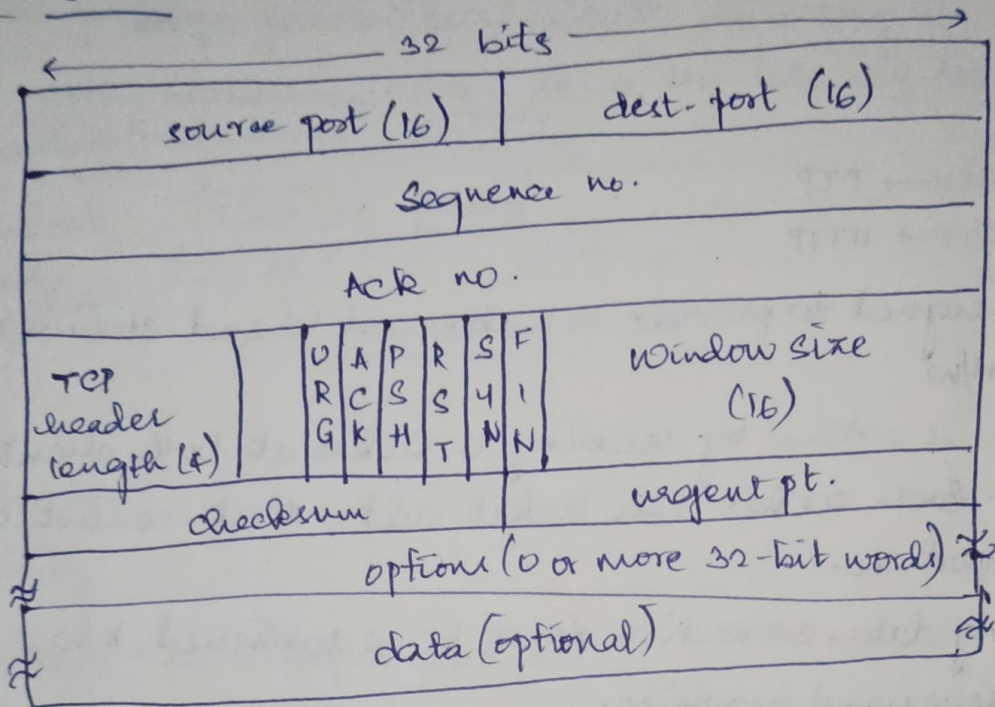 32 bits
source port (16) dest. port (16)
Sequence no.
Ack no.
TCP header length (4) URG ACK PSH RST SYN FIN Window size (16)
checksum urgent pt.
options (0 or more 32-bit words)
data (optional)